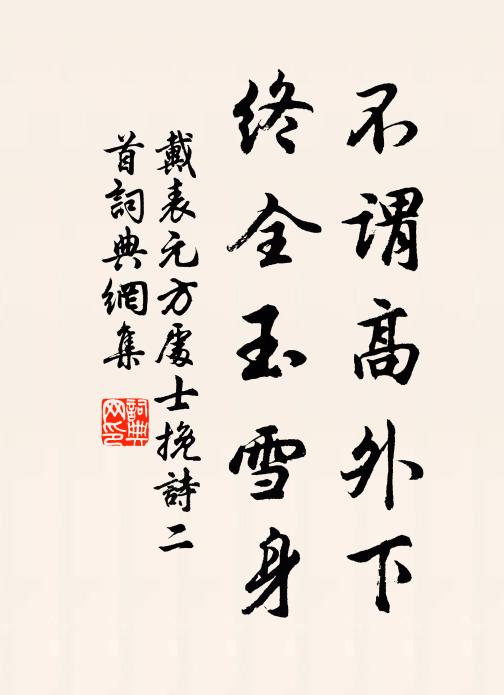 不謂高外下
終全玉雪身
戴表元方處士挽詩二
首詞典網集
詞典
网印